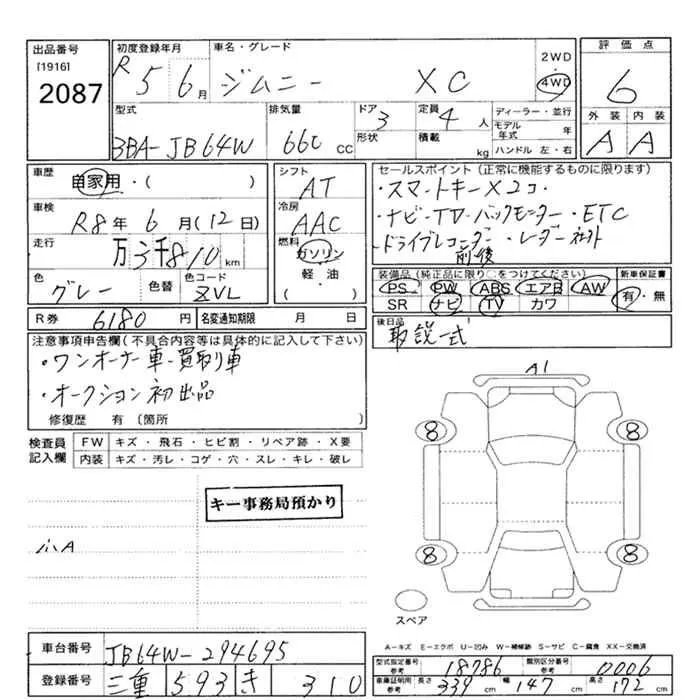 出品番号 初度登録年月 車名・グレード 2WD・4WD 評価点
[1916] 2087 R5 6月 ジムニー XC 6
型式 排気量 ドア 定員 ディーラー・並行 外装 内装
3BA-JB64W 660 CC 3 4人 A A
形状 積載 kg モデル年式 年
ハンドル 左・右
車歴 自家用・( ) シフト AT
車検 R8年 6月(12日) 冷房 AAC
走行 万3千810km 燃料 ガソリン 軽油 ( )
色 グレー 色替 色コード ZVL
R券 6180円 名変通知期限 月 日
セールスポイント(正常に機能するものに限ります)
・スマートキーX2コ・
・ナビ-TV-バックモニター・ETC
・ドライブレコーダー・レーダー
前後
装備品(純正品に限り○をつけてください) 新車保証書
PS PW ABS エアB AW 有・無
SR ナビ TV カワ
後日品
取説一式
注意事項申告欄(不具合内容等は具体的に記入して下さい)
・ワンオーナー車-買取り車
・オークション初出品
修復歴 有 〔箇所 〕
検査員記入欄 FW キズ・飛石・ヒビ割・リペア跡・X要
内装 キズ・汚レ・コゲ・穴・スレ・キレ・破レ
キー事務局預かり
小A
A1
8 8
8 8
スペア
A-キズ E-エクボ U-凹み W-補修跡 S-サビ C-腐食 XX-交換済
車台番号 JB64W-294695
登録番号 三重 593 き 310
型式指定番号 参考 18786 類別区分番号 参考 0006
車庫証明用 参考 長さ 339 cm 幅 147 cm 高さ 172 cm